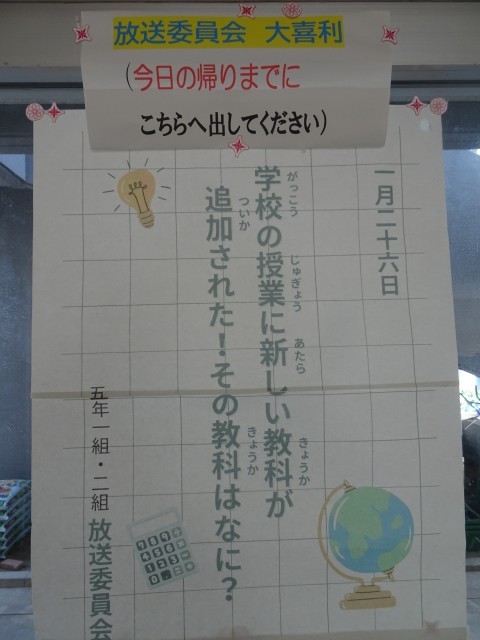 放送委員会 大喜利
(今日の帰りまでに
こちらへ出してください)
一月二十六日
学校の授業に新しい教科が
がっこう じゅぎょう あたら きょうか
追加された！その教科はなに？
ついか きょうか
五年一組・二組 放送委員会
789÷
456×
123-
0.=+